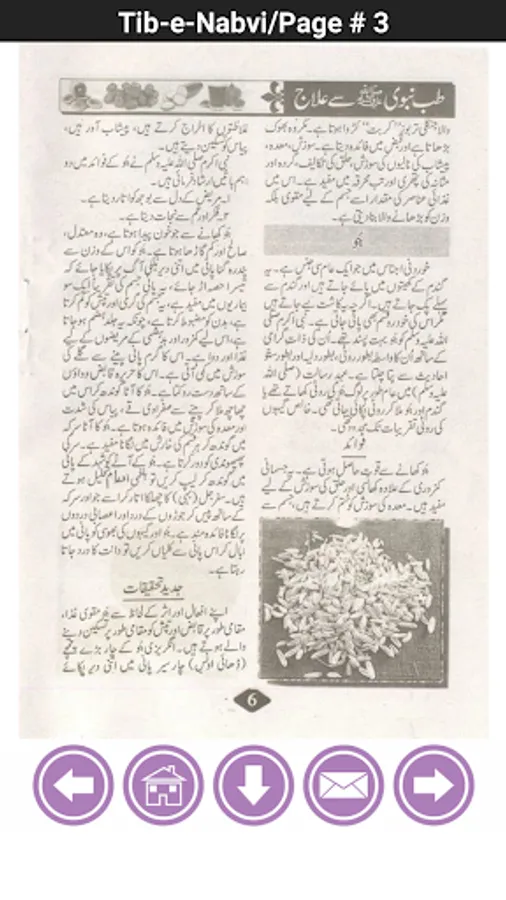 Tib-e-Nabvi/Page # 3
طب نبوی ﷺ سے علاج
والا جنگلی تربوز "کربت" کڑوا ہوتا ہے۔ مگر وہ بھوک
بڑھاتا ہے اور قبض میں فائدہ دیتا ہے۔ سوزش، معدہ،
پیشاب کی نالیوں کی سوزش، حلق کی تکالیف، گردہ اور
مثانہ کی پتھری اور تپ محرقہ میں مفید ہے۔ اس میں
غذائی عناصر کی مقدار اسے جسم کے لیے مقوی بلکہ
وزن کو بڑھانے والا بنا دیتی ہے۔
جَو
خوردنی اجناس میں جو ایک عام سی جنس ہے۔ یہ
گندم کے کھیتوں میں پائے جاتے ہیں اور گندم سے
پہلے پک جاتے ہیں۔ اگرچہ یہ کاشت کیے جاتے ہیں
مگر اس کی خودرو قسم بھی پائی جاتی ہے۔ نبی اکرم صلی
اللہ علیہ وسلم کو جَو بہت پسند تھے۔ ان کی ذات گرامی
کے ساتھ ان کا واسطہ بطور روٹی، بطور دلیا اور بطور ستو
احادیث سے پتا چلتا ہے۔ عہد رسالت (صلی اللہ
علیہ وسلم) میں عام طور پر لوگ جَو کی روٹی کھاتے تھے یا
گندم اور جَو ملا کر روٹی پکائی جاتی تھی۔ خالص گیہوں
کی روٹی تقریبات تک محدود تھی۔
فوائد
جَو کھانے سے قوت حاصل ہوتی ہے۔ یہ جسمانی
کمزوری کے علاوہ کھانسی اور حلق کی سوزش کے لیے
مفید ہیں۔ معدہ کی سوزش کو ختم کرتے ہیں، جسم سے
غلاظتوں کا اخراج کرتے ہیں، پیشاب آور ہیں،
پیاس کو تسکین دیتے ہیں۔
نبی اکرم صلی اللہ علیہ وسلم نے جَو کے فوائد میں دو
اہم باتیں ارشاد فرمائی ہیں۔
۱۔ مریض کے دل سے بوجھ کو اتار دیتا ہے۔
۲۔ فکر اور غم سے نجات دیتا ہے۔
جَو کھانے سے جو خون پیدا ہوتا ہے، وہ معتدل،
صالح اور کم گاڑھا ہوتا ہے۔ جَو کو اس کے وزن سے
پندرہ گنا پانی میں اتنی دیر ہلکی آگ پر پکایا جائے کہ
تیسرا حصہ اڑ جائے، یہ پانی جسم کی تقریباً ایک سو
بیماریوں میں مفید ہے، یہ جسم کی گرمی اور تپش کو کم کرتا
ہے، بدن کو مضبوط کرتا ہے، چونکہ یہ جلد ہضم ہو جاتا
ہے، اس لیے کمزور اور بدہضمی کے مریضوں کے لیے
غذا اور دوا ہے۔ اس کا گرم پانی پینے سے گلے کی
سوزش میں کمی آتی ہے۔ اس کا حریرہ قابض دواؤں
کے ساتھ دست روکتا ہے۔ جَو کا آٹا گوندھ کر اس میں
چھاچھ ملا کر پینے سے صفراوی قے، پیاس کی شدت
اور معدہ کی سوزش میں فائدہ ہوتا ہے۔ جَو کا آٹا سرکہ
میں گوندھ کر ہر قسم کی خارش میں لگانا مفید ہے۔ سر کی
پھپھوندی کو دور کرتا ہے۔ جَو کے آٹے کو شہد کے پانی
میں گوندھ کر لیپ کریں تو بلغمی اورام تحلیل ہوتے
ہیں۔ سفرجل (بہی) کا چھلکا اتار کر اسے جَو اور سرکہ
کے ساتھ پیس کر جوڑوں کے درد اور اعصابی دردوں
پر لگانا فائدہ مند ہے۔ جَو اور گیہوں کی بھوسی کو پانی میں
ابال کر اس پانی سے کلیاں کریں تو دانت کا درد جاتا
رہتا ہے۔
جدید تحقیقات
اپنے افعال اور اثر کے لحاظ سے جَو مقوی غذا،
مقامی طور پر قابض اور تپش کو مقامی طور پر تسکین دینے
والے ہوتے ہیں۔ انگریزی جَو کے چار بڑے چمچے
(ڈھائی اونس) چار سیر پانی میں اتنی دیر پکائے
6